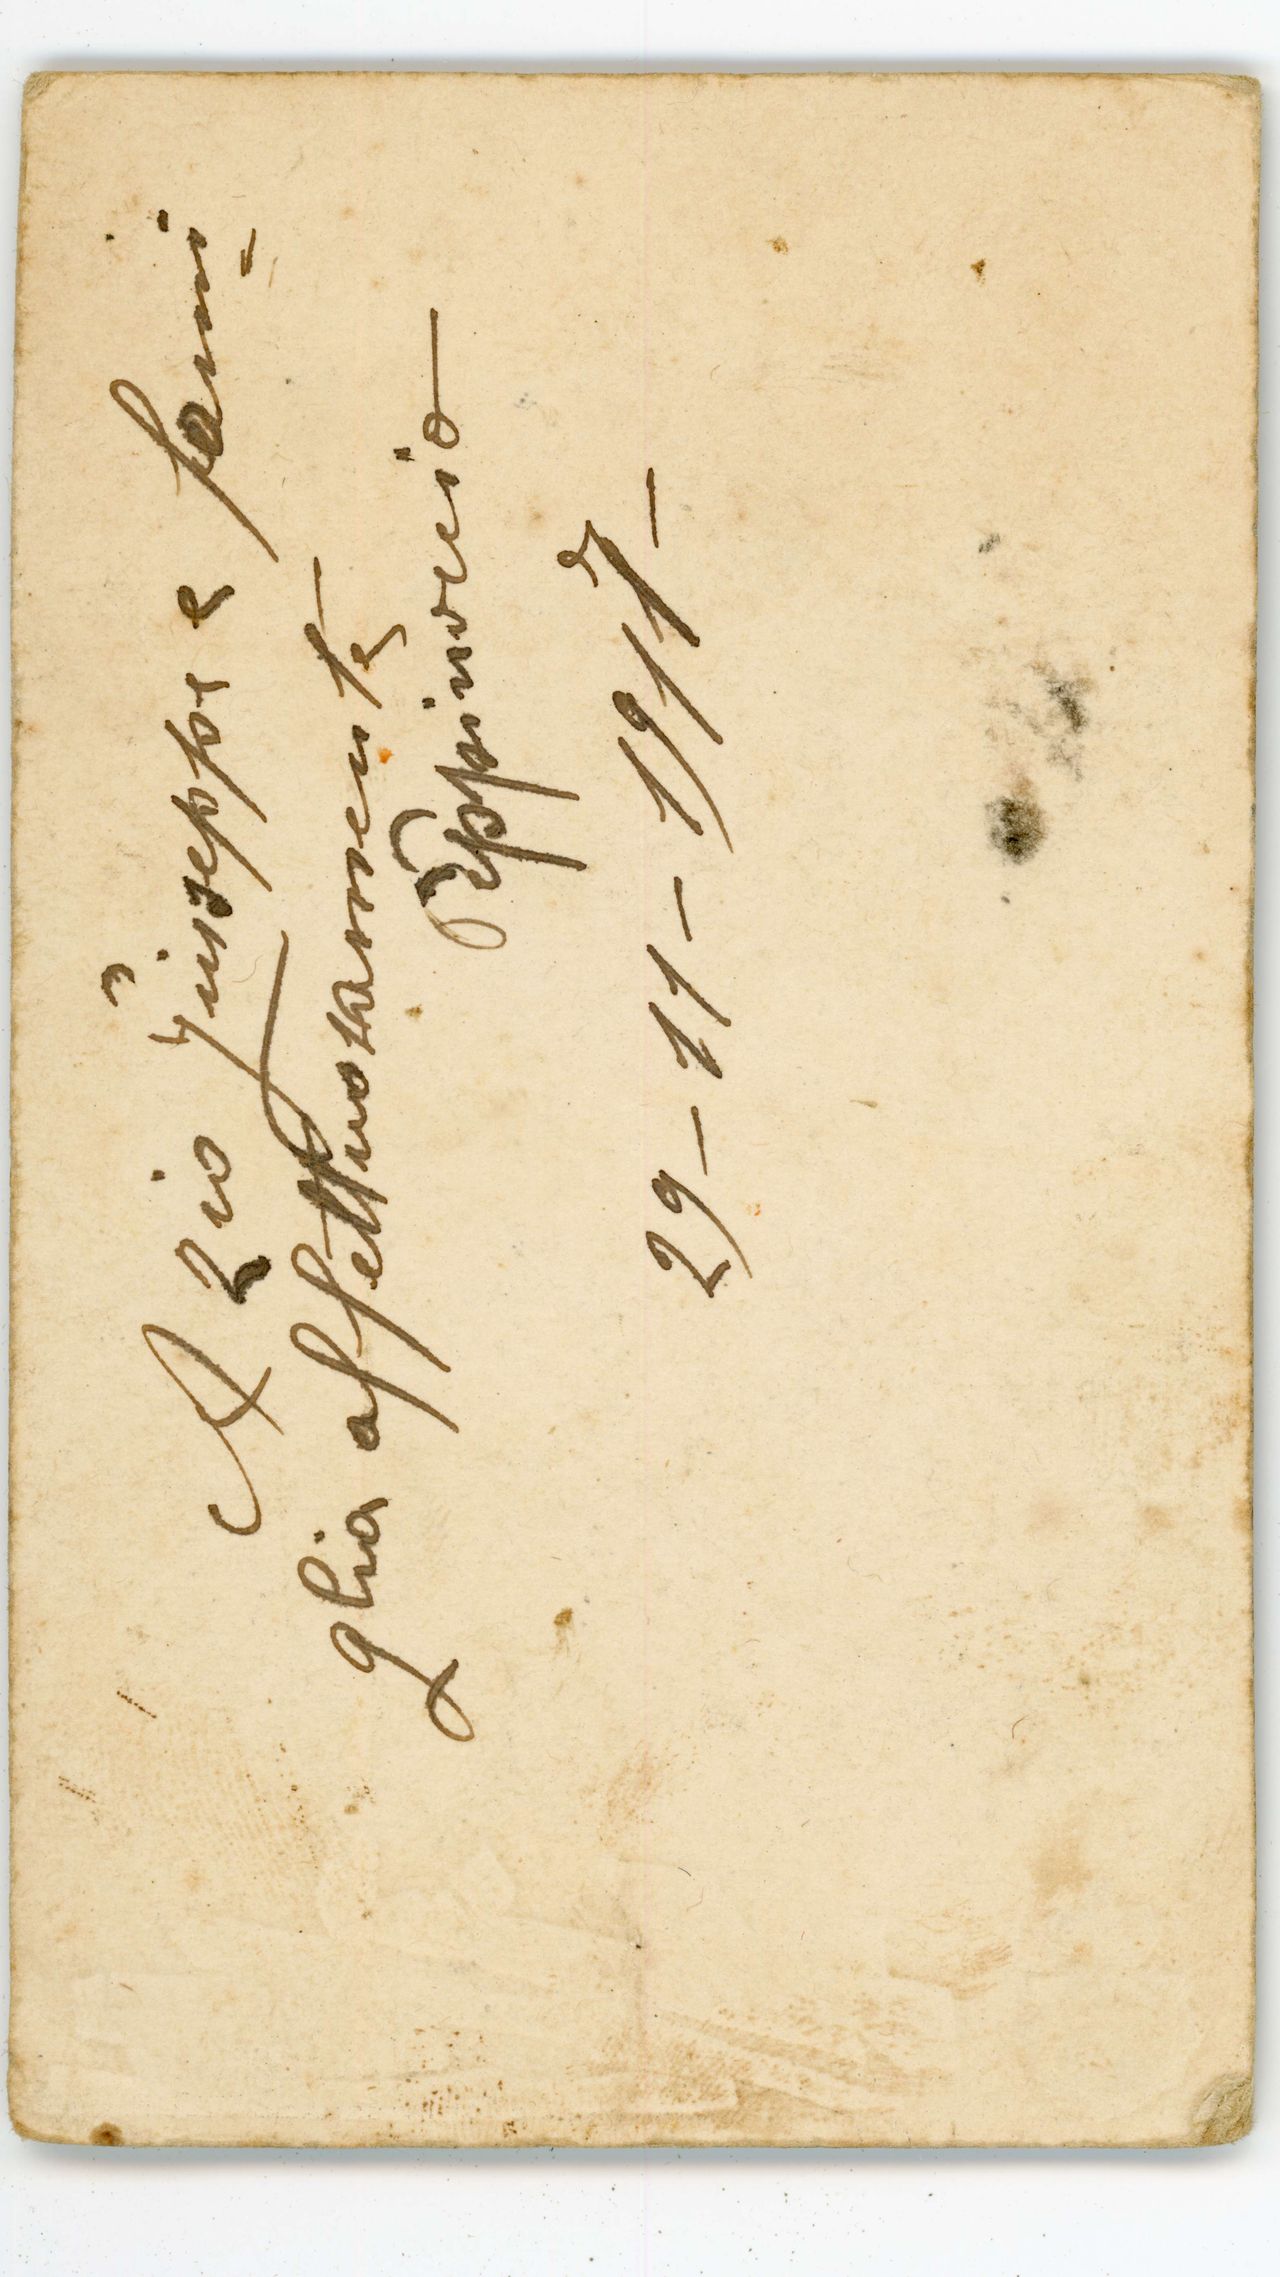 A zio Giuseppe e fami-
glia affettuosamente –
Peppinocio –
29 – 11 – 1917 –